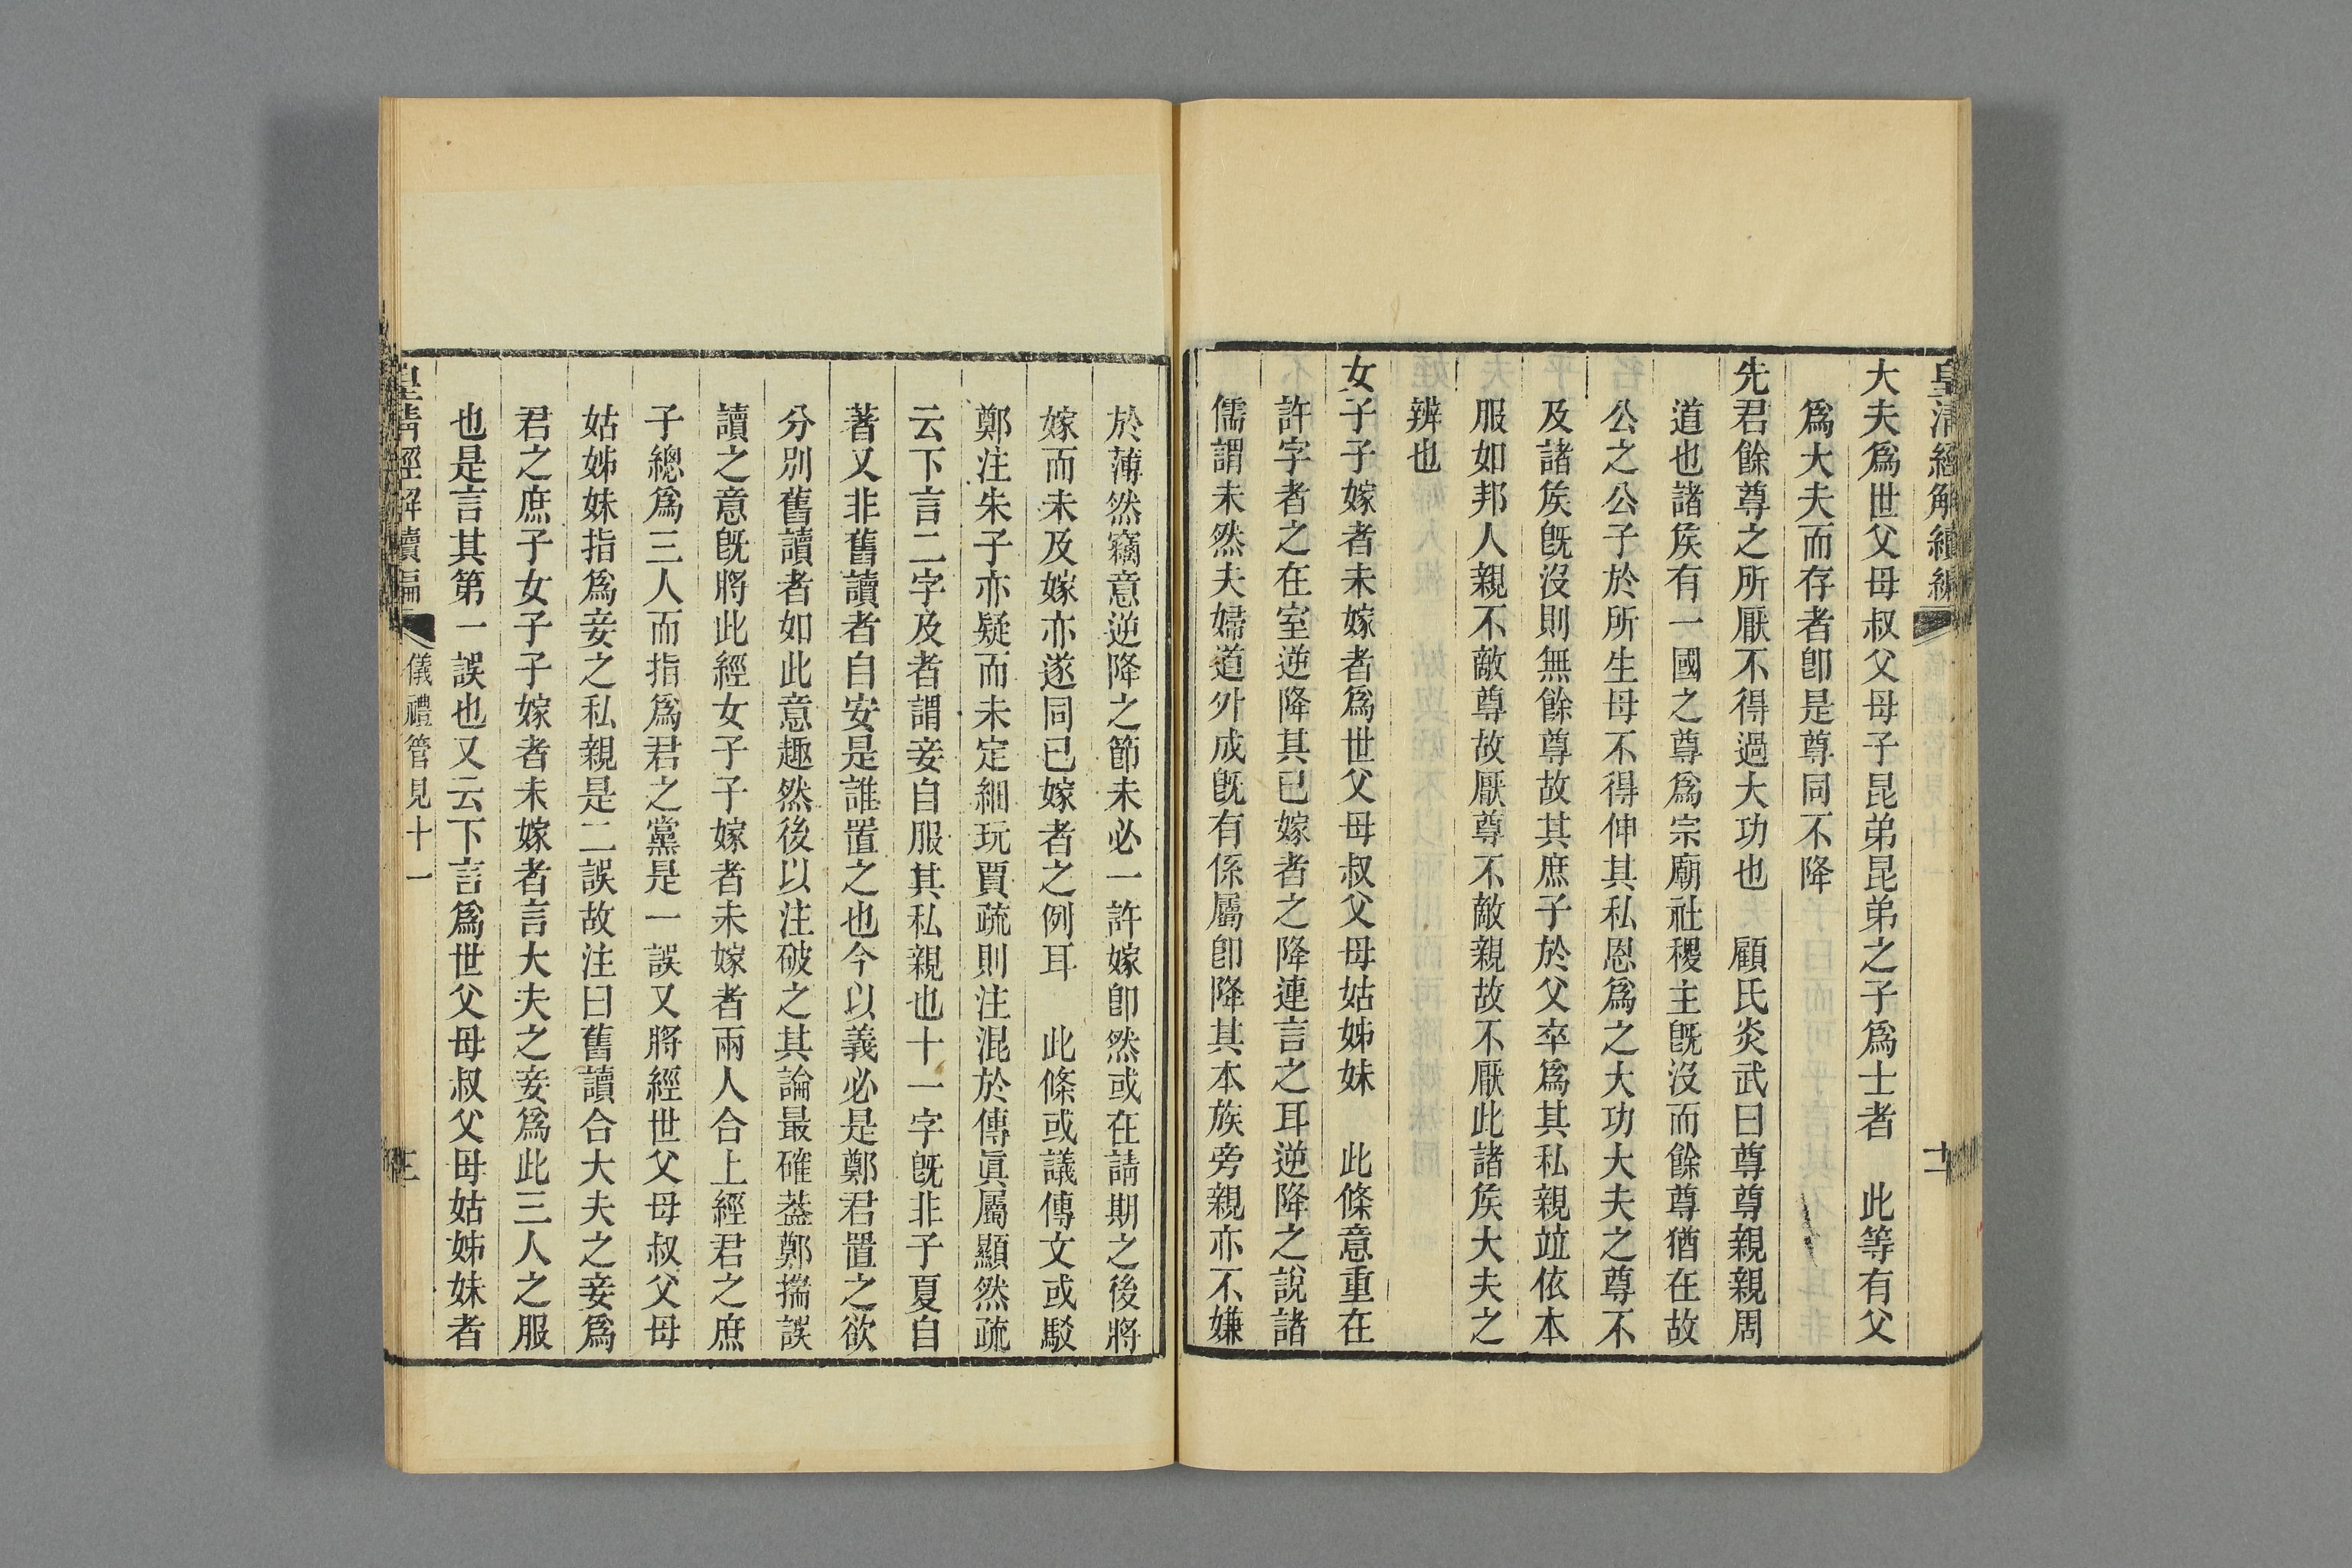 皇清經解續編
十二
大夫爲世父母叔父母子昆弟昆弟之子爲士者　此等有父
爲大夫而存者卽是尊同不降
先君餘尊之所厭不得過大功也　顧氏炎武曰尊尊親親周
道也諸矦有一國之尊爲宗廟社稷主旣沒而餘尊猶在故
公之公子於所生母不得伸其私恩爲之大功大夫之尊不
及諸矦旣沒則無餘尊故其庶子於父卒爲其私親竝依本
服如邦人親不敵尊故厭尊不敵親故不厭此諸矦大夫之
辨也
女子子嫁者未嫁者爲世父母叔父母姑姊妹　此條意重在
許字者之在室逆降其已嫁者之降連言之耳逆降之說諸
儒謂未然夫婦道外成旣有係屬卽降其本族旁親亦不嫌
於薄然竊意逆降之節未必一許嫁卽然或在請期之後將
嫁而未及嫁亦遂同已嫁者之例耳　此條或議傳文或駮
鄭注朱子亦疑而未定細玩賈疏則注混於傳眞屬顯然疏
云下言二字及者謂妾自服其私親也十一字旣非子夏自
著又非舊讀者自安是誰置之也今以義必是鄭君置之欲
分別舊讀者如此意趣然後以注破之其論最確葢鄭揣誤
讀之意旣將此經女子子嫁者未嫁者兩人合上經君之庶
子總爲三人而指爲君之黨是一誤又將經世父母叔父母
姑姊妹指爲妾之私親是二誤故注曰舊讀合大夫之妾爲
君之庶子女子子嫁者未嫁者言大夫之妾爲此三人之服
也是言其第一誤也又云下言爲世父母叔父母姑姊妹者
皇清經解續編
儀禮管見十一